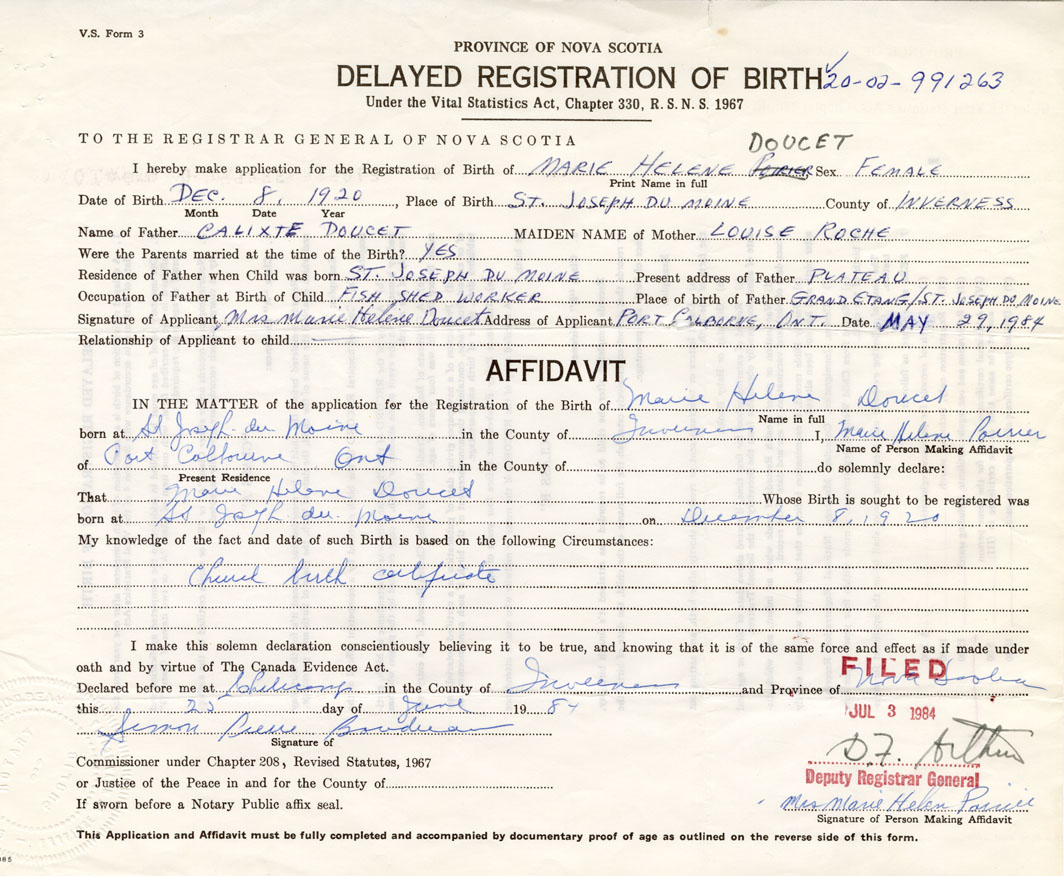 V.S. Form 3
PROVINCE OF NOVA SCOTIA
DELAYED REGISTRATION OF BIRTH 20-02-991263
Under the Vital Statistics Act, Chapter 330, R.S.N.S. 1967
TO THE REGISTRAR GENERAL OF NOVA SCOTIA
DOUCET
I hereby make application for the Registration of Birth of MARIE HELENE POIRIER Sex FEMALE
Print Name in full
Date of Birth DEC. 8, 1920, Place of Birth ST. JOSEPH DU MOINE County of INVERNESS
Month Date Year
Name of Father CALIXTE DOUCET MAIDEN NAME of Mother LOUISE ROCHE
Were the Parents married at the time of the Birth? YES
Residence of Father when Child was born ST. JOSEPH DU MOINE Present address of Father PLATEAU
Occupation of Father at Birth of Child FISH SHED WORKER Place of birth of Father GRAND ETANG/ST. JOSEPH DU MOINE
Signature of Applicant Mrs Marie Helene Doucet Address of Applicant PORT COLBORNE, ONT. Date MAY 29, 1984
Relationship of Applicant to child
AFFIDAVIT
IN THE MATTER of the application for the Registration of the Birth of Marie Helene Doucet
Name in full
born at St Joseph du Moine in the County of Inverness I, Marie Helene Poirier
Name of Person Making Affidavit
of Port Colbourne Ont in the County of do solemnly declare:
Present Residence
That Marie Helene Doucet Whose Birth is sought to be registered was
born at St Joseph du Moine on December 8, 1920
My knowledge of the fact and date of such Birth is based on the following Circumstances:
Church birth certificate
I make this solemn declaration conscientiously believing it to be true, and knowing that it is of the same force and effect as if made under
oath and by virtue of The Canada Evidence Act.
FILED
Declared before me at Cheticamp in the County of Inverness and Province of Nova Scotia
this 25 day of June 1984
JUL 3 1984
Simon Pierre Boudreau
Signature of
D.F. Arthur
Commissioner under Chapter 208, Revised Statutes, 1967
Deputy Registrar General
or Justice of the Peace in and for the County of
Mrs Marie Helen Poirier
If sworn before a Notary Public affix seal.
Signature of Person Making Affidavit
This Application and Affidavit must be fully completed and accompanied by documentary proof of age as outlined on the reverse side of this form.